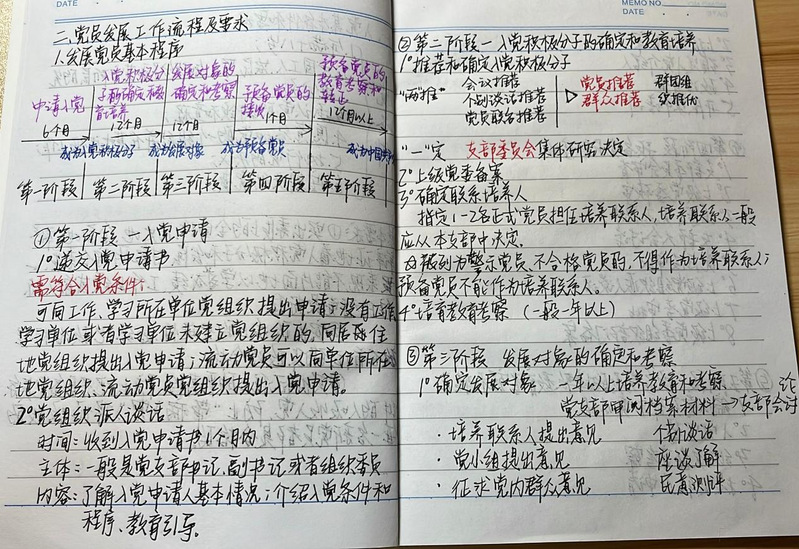 DATE
二、党员发展工作流程及要求
1.发展党员基本程序
申请入党
入党积极分子的确定和教育培养
发展对象的确定和考察
预备党员的接收
预备党员的教育考察和转正
6个月 12个月 12个月 1个月 12个月以上
成为入党积极分子 成为发展对象 成为预备党员 成为中国共
第一阶段 第二阶段 第三阶段 第四阶段 第五阶段
①第一阶段 — 入党申请
1°递交入党申请书
需符合入党条件:
可向工作、学习所在单位党组织提出申请;没有工作
学习单位或者学习单位未建立党组织的,向居住
地党组织提出入党申请;流动党员可以向单位所在
地党组织、流动党员党组织提出入党申请。
2°党组织派人谈话
时间:收到入党申请书1个月内
主体:一般是党支部书记、副书记或者组织委员
内容:了解入党申请人基本情况;介绍入党条件和
程序、教育引导。
MEMO NO.
DATE
②第二阶段 — 入党积极分子的确定和教育培养
1°推荐和确定入党积极分子
"两推"
会议推荐
个别谈话推荐
党员联名推荐
党员推荐
群众推荐
群团组
织推优
"一"定 支部委员会集体研究决定
2°上级党委备案
3°确定联系培养人
指定1-2名正式党员担任培养联系人,培养联系人一般
应从本支部中决定。
被列为警示党员、不合格党员的,不得作为培养联系人;
预备党员不能作为培养联系人。
4°培育教育考察(一般一年以上)
③第三阶段 发展对象的确定和考察
1°确定发展对象 一年以上培养教育和考察
党支部审阅档案材料→支部会讨论
·培养联系人提出意见 个别谈话
·党小组提出意见 座谈了解
·征求党内群众意见 民意测评